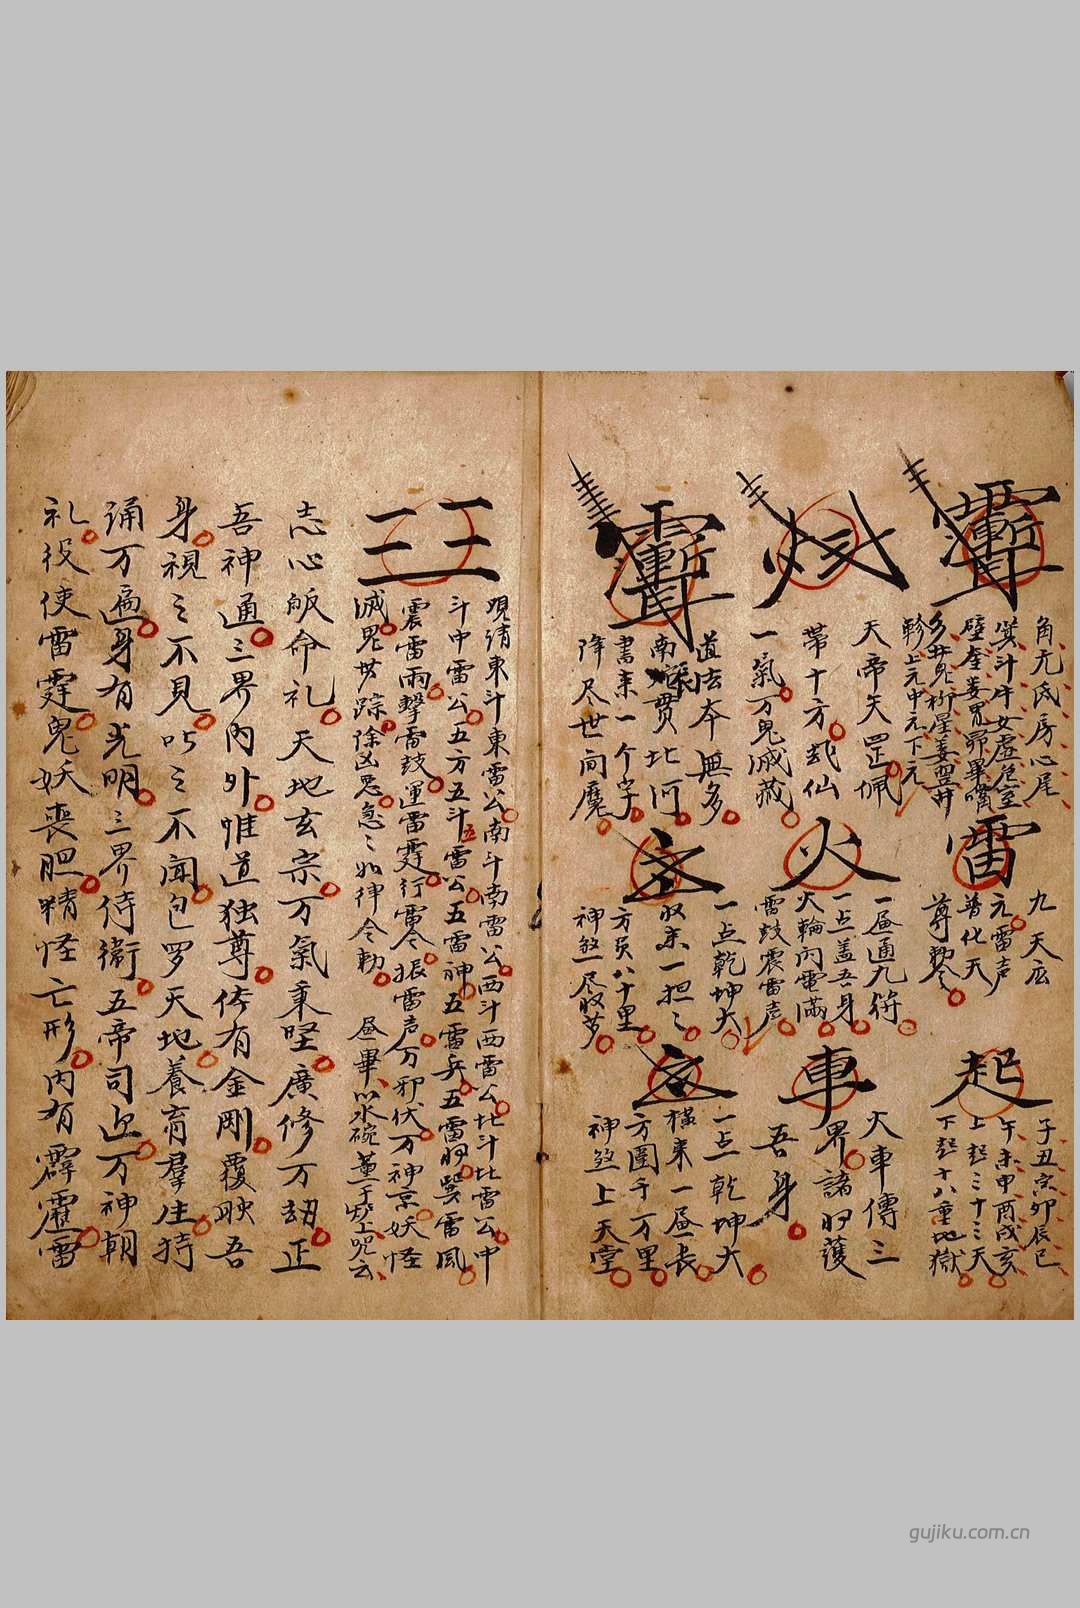 角亢氐房心尾
箕斗牛女虛危室
壁奎婁胃昴畢嘴
参井鬼柳星張翌井
軫上元中元下元
雷
九天応
元雷声
普化天
尊勅令
起
子丑寅卯辰巳
午未申酉戌亥
上起三十三天
下起十八重地獄
天帝矢罡佩
帶十方武仙
一氣万鬼滅藏
火
一畐通九符
一点盖吾身
火輪內電滿
雷鼓震雷声
車
火車傳三
界諸将護
吾身
道法本無多
南辰貫北河
書来一个字
降尽世间魔
一点乾坤大
收来一担
方员八十里
神煞尽收萝
一点乾坤大
橫来一畐長
方圓千万里
神煞上天堂
王
王
覌請東斗東雷公南斗南雷公西斗西雷公北斗北雷公中
斗中雷公五方五斗五雷公五雷神五雷兵五雷将巽雷風
震雷雨擊雷鼓運雷霆行雷令振雷声万邪伏万神京妖怪
滅鬼世踪除凶惡急〻如律令勅 畐畢以水碗薰于炉上咒云
志心皈命礼天地玄宗万氣秉堅廣修万劫正
吾神通三界內外惟道独尊体有金剛覆映吾
身視之不見听之不闻包罗天地養育羣生持
诵万遍身有光明三界侍衛五帝司迎万神朝
礼役使雷霆鬼妖喪胆精怪亡形內有霹靂雷
gujiku.com.cn